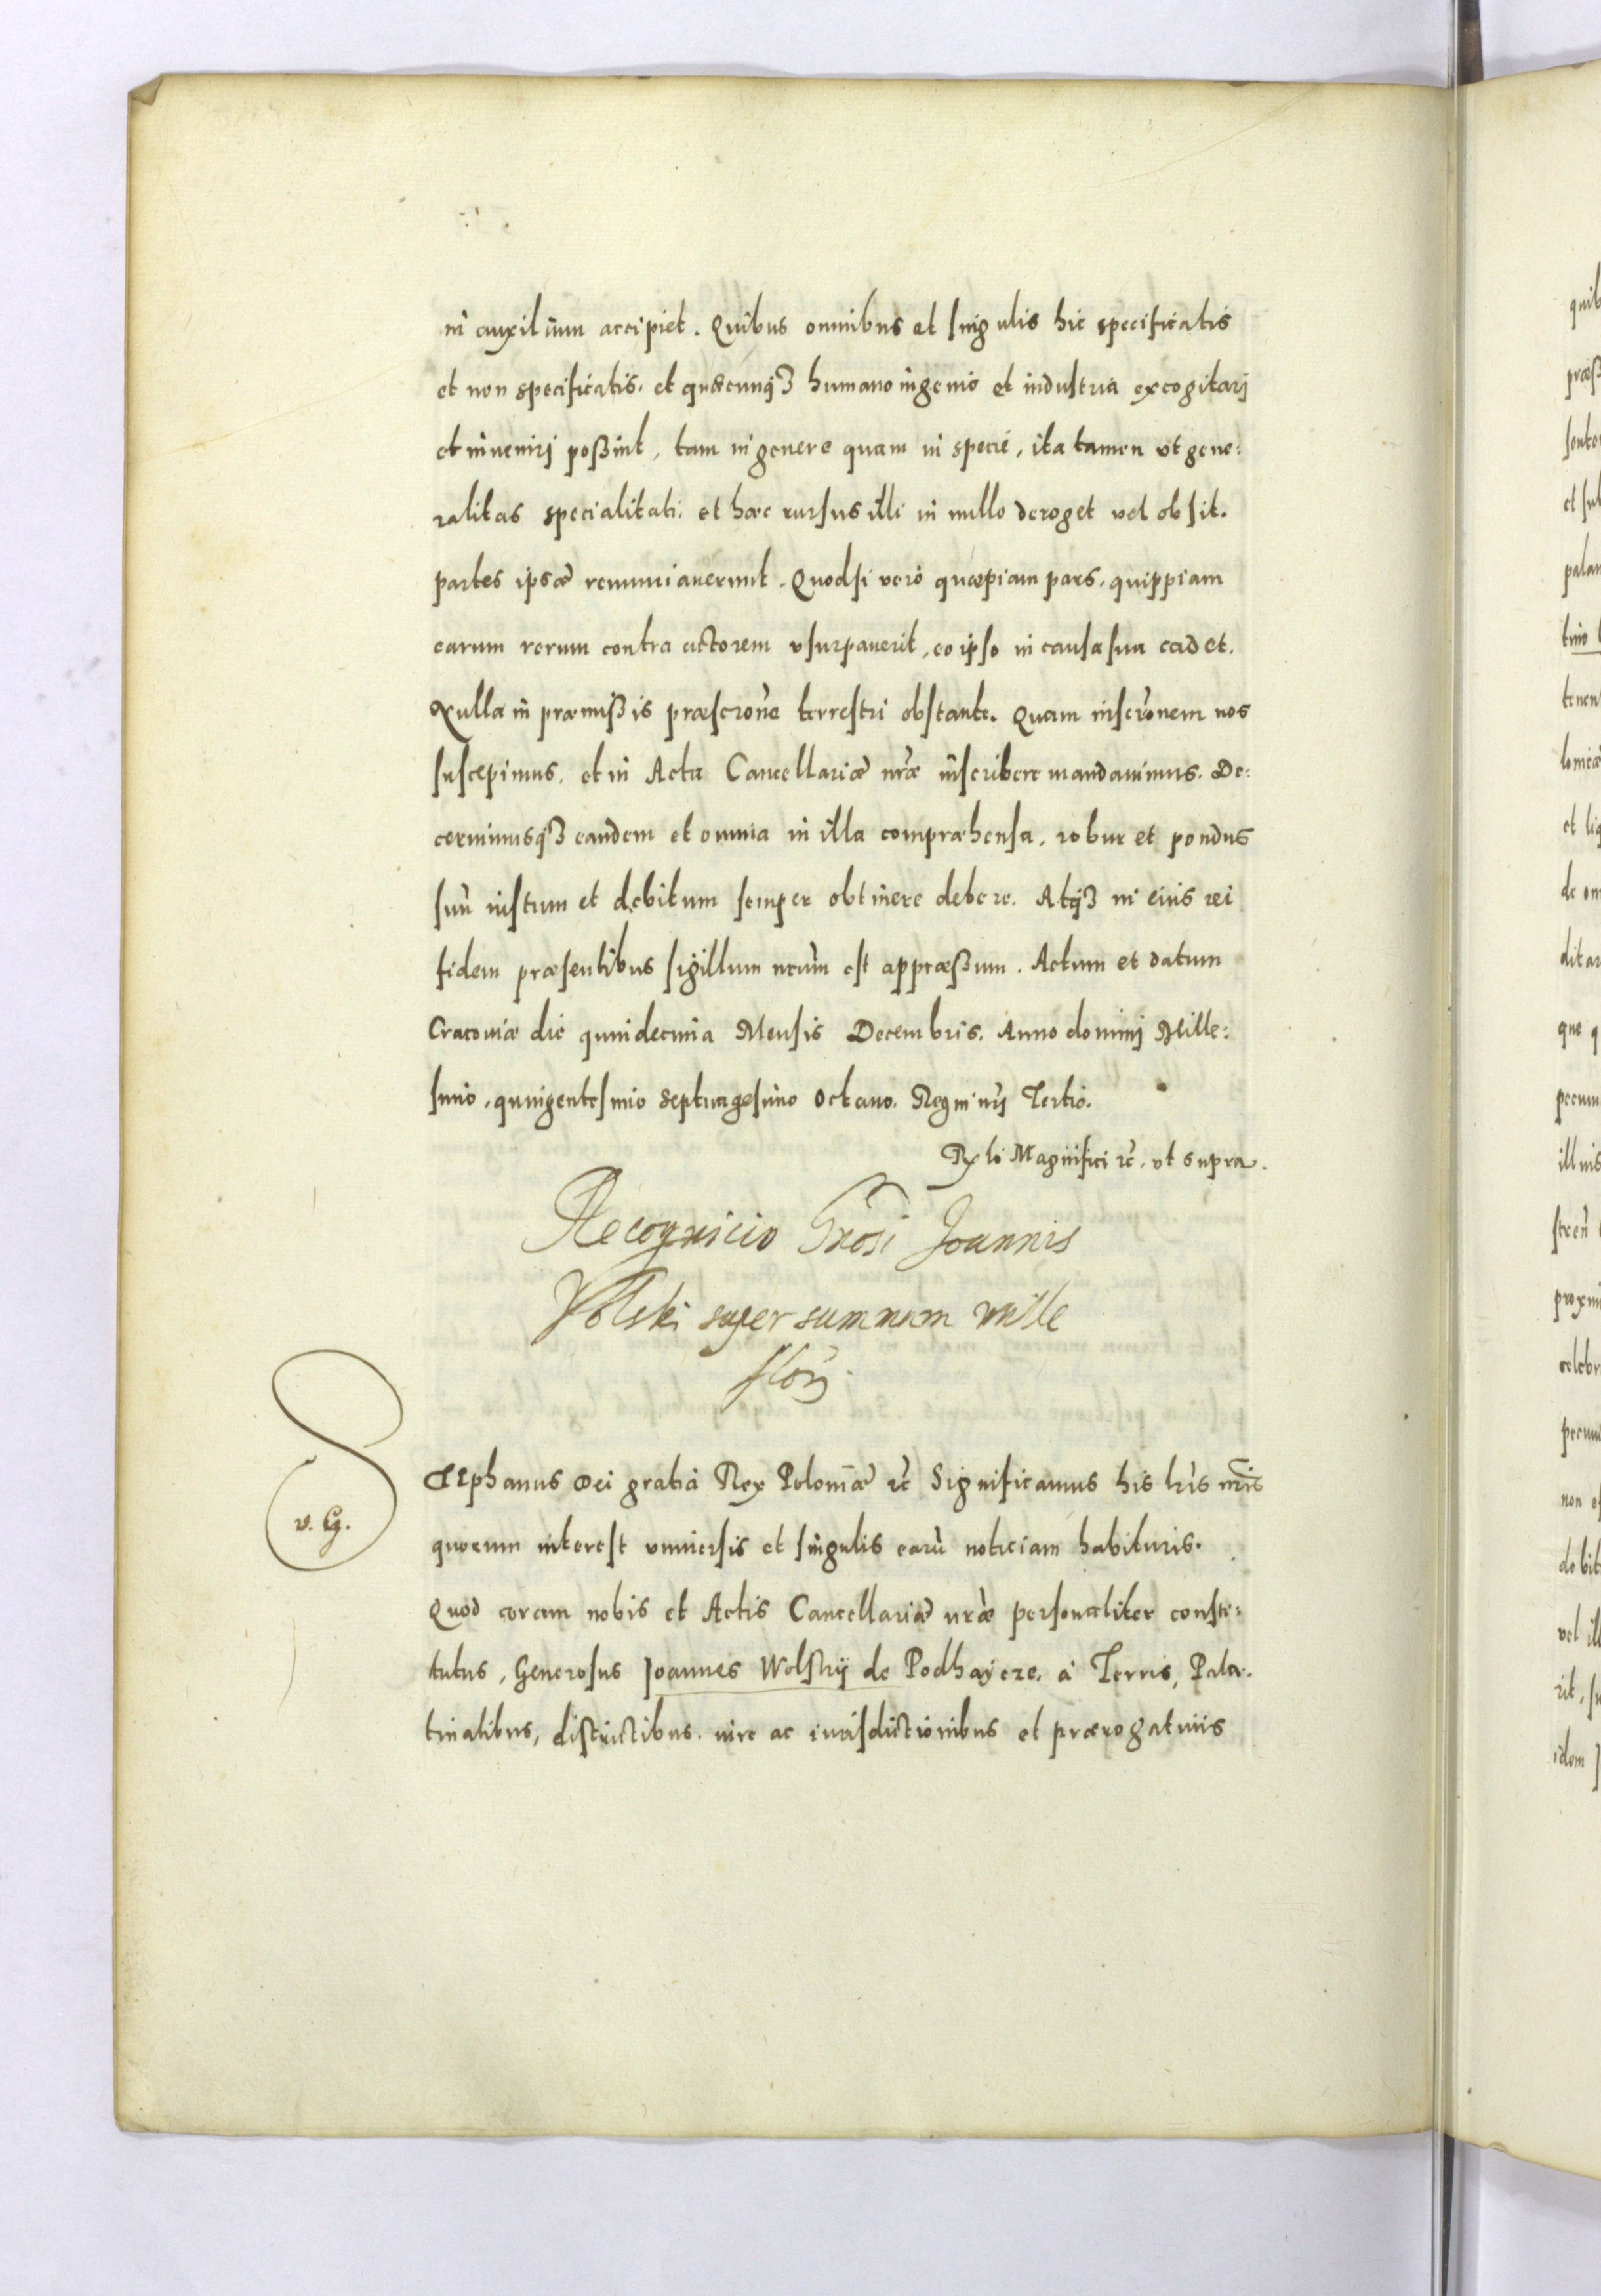 in auxilium accipiet. Quibus omnibus et singulis hic specificatis
et non specificatis. et quæcunq3 humano ingenio et industria excogitarj
et invenirj poßint, tam in genere quam in specie, ita tamen vt gene:
ralitas specialitati. et hæc rursus illi in nullo deroget vel obsit.
partes ipsæ renunciauerunt. Quodsi vero quæpiam pars, quippiam
earum rerum contra actorem vsurpauerit, eo ipso in causa sua cadet.
Nulla in præmißis præscrõne terrestri obstante. Quam inscrõnem nos
suscepimus, et in Acta Cancellariæ nr̃æ inscribere mandauimus. De:
cernimusq3 eandem et omnia in illa compræhensa, robur et pondus
suũ iustum et debitum semper obtinere debere. Atq3 in eius rei
fidem præsentibus sigillum nr̃um est appræßum. Actum et datum
Cracouiæ die quindecima Mensis Decembris. Anno dominj Mille:
simo, quingentesimo Septuagesimo Octauo. Regni nr̃j Tertio.
Rx lõ Magnifici rc̃. vt supra.
Recognicio Gnosi Joannis
Volski super summam mille
flor̃.
v. G.
STEphanus Dei gratia Rex Poloniæ rc̃ Significamus his lr̃is nr̃is
quorum interest vniuersis et singulis earũ noticiam habituris.
Quod coram nobis et Actis Cancellariæ nr̃æ personaliter consti:
tutus, Generosus Joannes Wolskij de Podhaÿcze, à Terris, Pala:
tinatibus, districtibus. iure ac iurisdictionibus et prærogatiuis